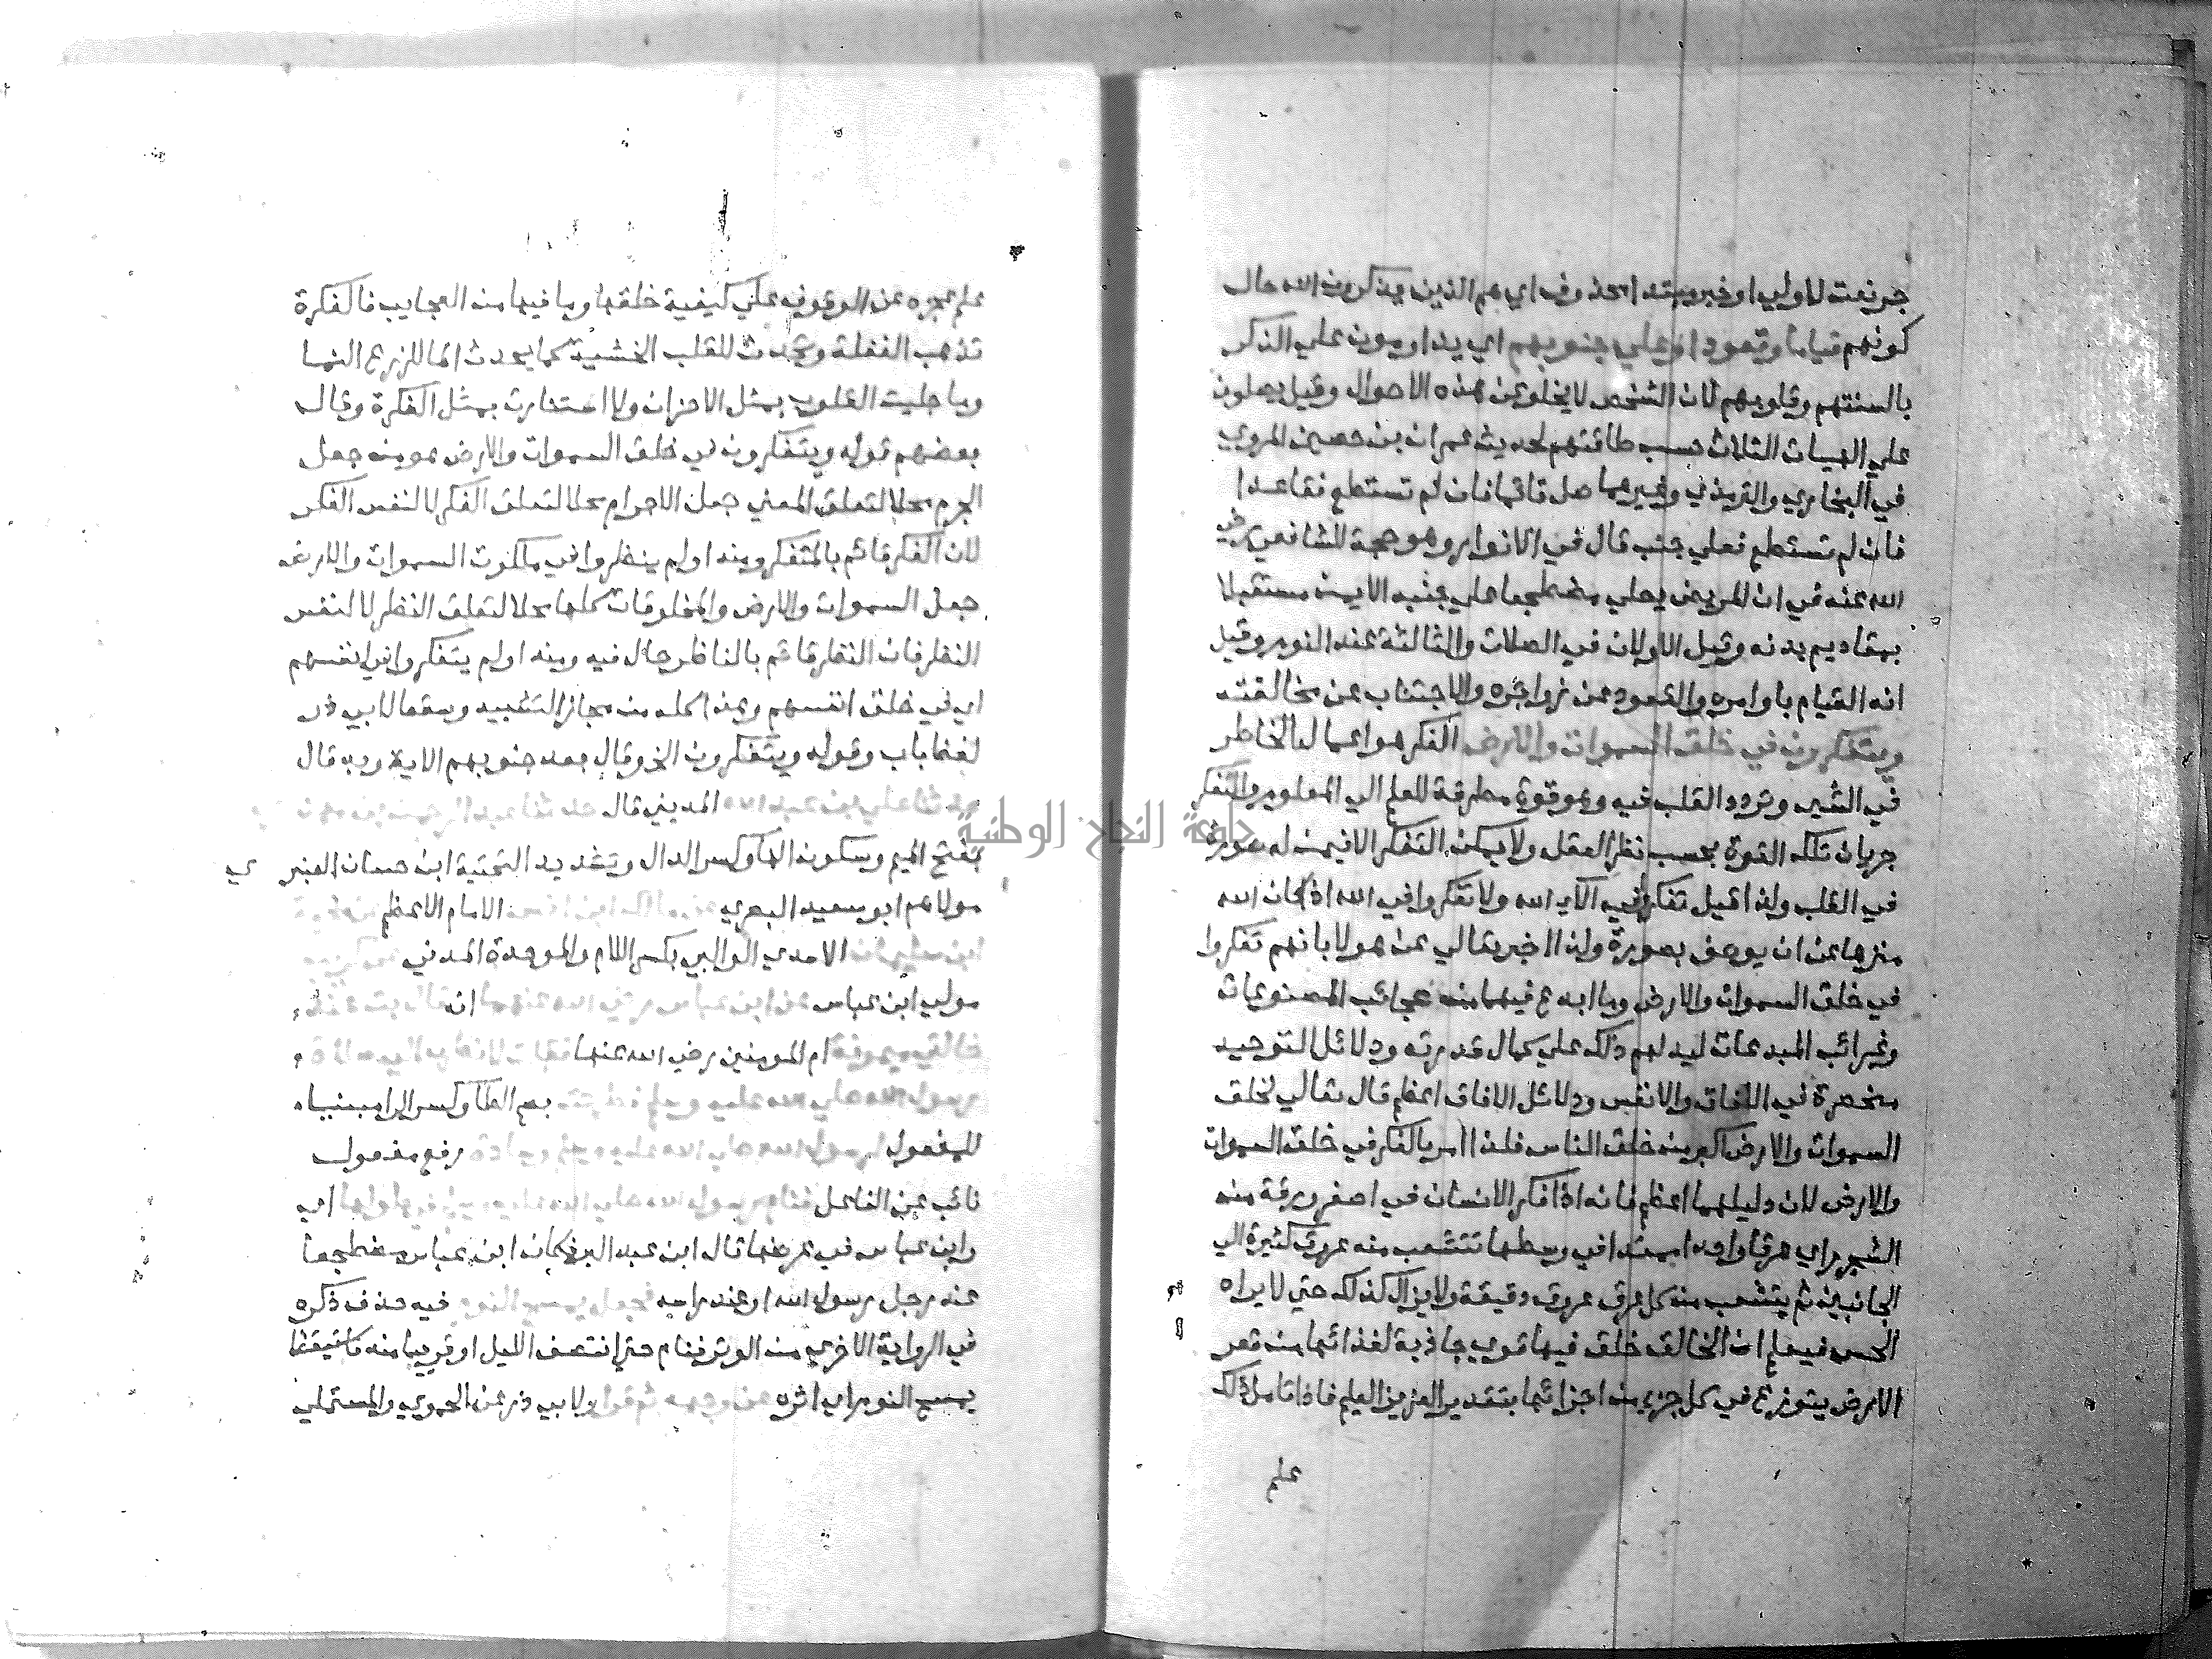 جر نعت لاولي او خبر مبتدا محذوف اي هم الذين يذكرون الله حال
كونهم قياما وقعودا وعلي جنوبهم اي يداومون علي الذكر
بالسنتهم وقلوبهم لان الشخص لا يخلو عن هذه الاحوال وقيل يصلون
علي الهيات الثلاث حسب طاقتهم لحديث عمران بن حصين المروي
في البخاري والترمذي وغيرهما صل قائما فان لم تستطع فقاعدا
فان لم تستطع فعلي جنب قال في الانوار وهو حجة للشافعي رضي
الله عنه في ان المريض يصلي مضطجعا علي جنبه الايمن مستقبلا
بمقاديم بدنه وقيل الاولان في الصلاة والثالثة عند النوم وقيل
انه القيام باوامره والقعود عن زواجره والاجتناب عن مخالفته
ويتفكرون في خلق السموات والارض الفكر هو اعمال الخاطر
في الشيء وتردد القلب فيه وهو قوة مطرقة للعلم الي المعلوم والتفكر
جريان تلك القوة بحسب نظر العقل ولا يمكن التفكر الا فيمن له صورة
في القلب ولذا قيل تفكروا في الاء الله ولا تفكروا في الله اذ كان الله
منزها عن ان يوصف بصورة ولذا اخبر تعالي عن هولا بانهم تفكروا
في خلق السموات والارض وما ابدع فيهما من عجائب المصنوعات
وغرائب المبدعات ليدلهم ذلك علي كمال قدرته ودلائل التوحيد
منحصرة في الافاق والانفس ودلائل الافاق اعظم قال تعالي لخلق
السموات والارض اكبر من خلق الناس فلذا امر بالفكر في خلق السموات
والارض لان دليلهما اعظم فانه اذا فكر الانسان في اصغر ورقة من
الشجر راي عرقا واحدا ممتدا في وسطها تتشعب منه عروق كثيرة الي
الجانبين ثم يتشعب من كل عرق عروق دقيقة ولا يزال كذلك حتي لا يراه
الحس فيعلم ان الخالق خلق فيها قوي جاذبة لغذائها من قعر
الارض يتوزع في كل جزء من اجزائها بتقدير العزيز العليم فاذا تامل ذلك
علم
علم عجزه عن الوقوف علي كيفية خلقها وما فيها من العجايب فالفكرة
تذهب الغفلة وتحدث للقلب الخشية كما يحدث الما للزرع النما
وما جليت القلوب بمثل الاحزان ولا استنارت بمثل الفكرة وقال
بعضهم قوله ويتفكرون في خلق السموات والارض هو من جعل
الجرم محلا لتعلق المعني جعل الاجرام محلا لتعلق الفكر لا لنفس الفكر
لان الفكر قائم بالمتفكر ومنه اولم ينظروا في ملكوت السموات والارض
جعل السموات والارض والمخلوقات كلها محلا لتعلق النظر لا لنفس
النظر فان النظر قائم بالناظر حال فيه ومنه اولم يتفكروا في انفسهم
اي في خلق انفسهم وهذا كله من مجاز التشبيه وسقط لابي ذر
لفظ باب وقوله ويتفكرون الخ وقال بعد جنوبهم الاية وبه قال
المديني قال
بفتح الميم وسكون الها وكسر الدال وتشديد التحتية ابن حسان العنبري
مولاهم ابو سعيد البصري الامام الاعظم
الاسدي الوالبي بكسر اللام والموحدة المدني
مولي ابن عباس انه
ام المومنين رضي الله عنها
بضم الطا وكسر الرا مبنيا
للمفعول رفع مفعول
نائب عن الفاعل اي
وابن عباس في عرضها قال ابن عبد البر فكان ابن عباس مضطجعا
عند رجل رسول الله او عند راسه فيه حذف ذكره
في الرواية الاخري من الوتر فنام حتي انتصف الليل او قريبا منه فاستيقظ
يمسح النوم اي اثره ولابي ذر عن الحموي والمستملي
جامعة النجاح الوطنية